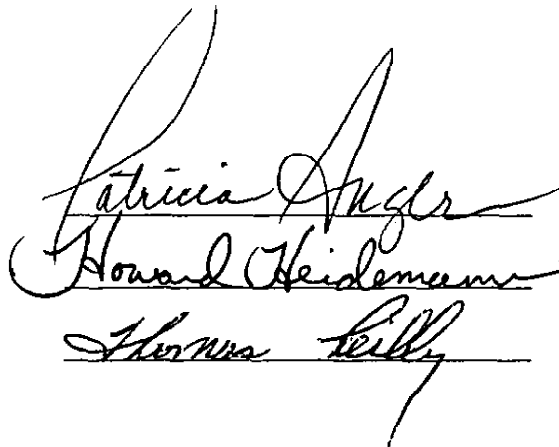 Patricia Angler
Howard Heidemann
Thomas Reilly